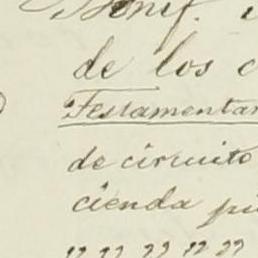 Benif.
de los
Testamentar
de circuito
cienda pú